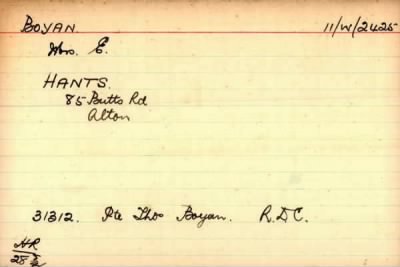 BOYAN. 11/W/2425
Mrs. E.
HANTS.
85 Butts Rd
Alton
31312. Pte Thos Boyan. R.D.C.
28